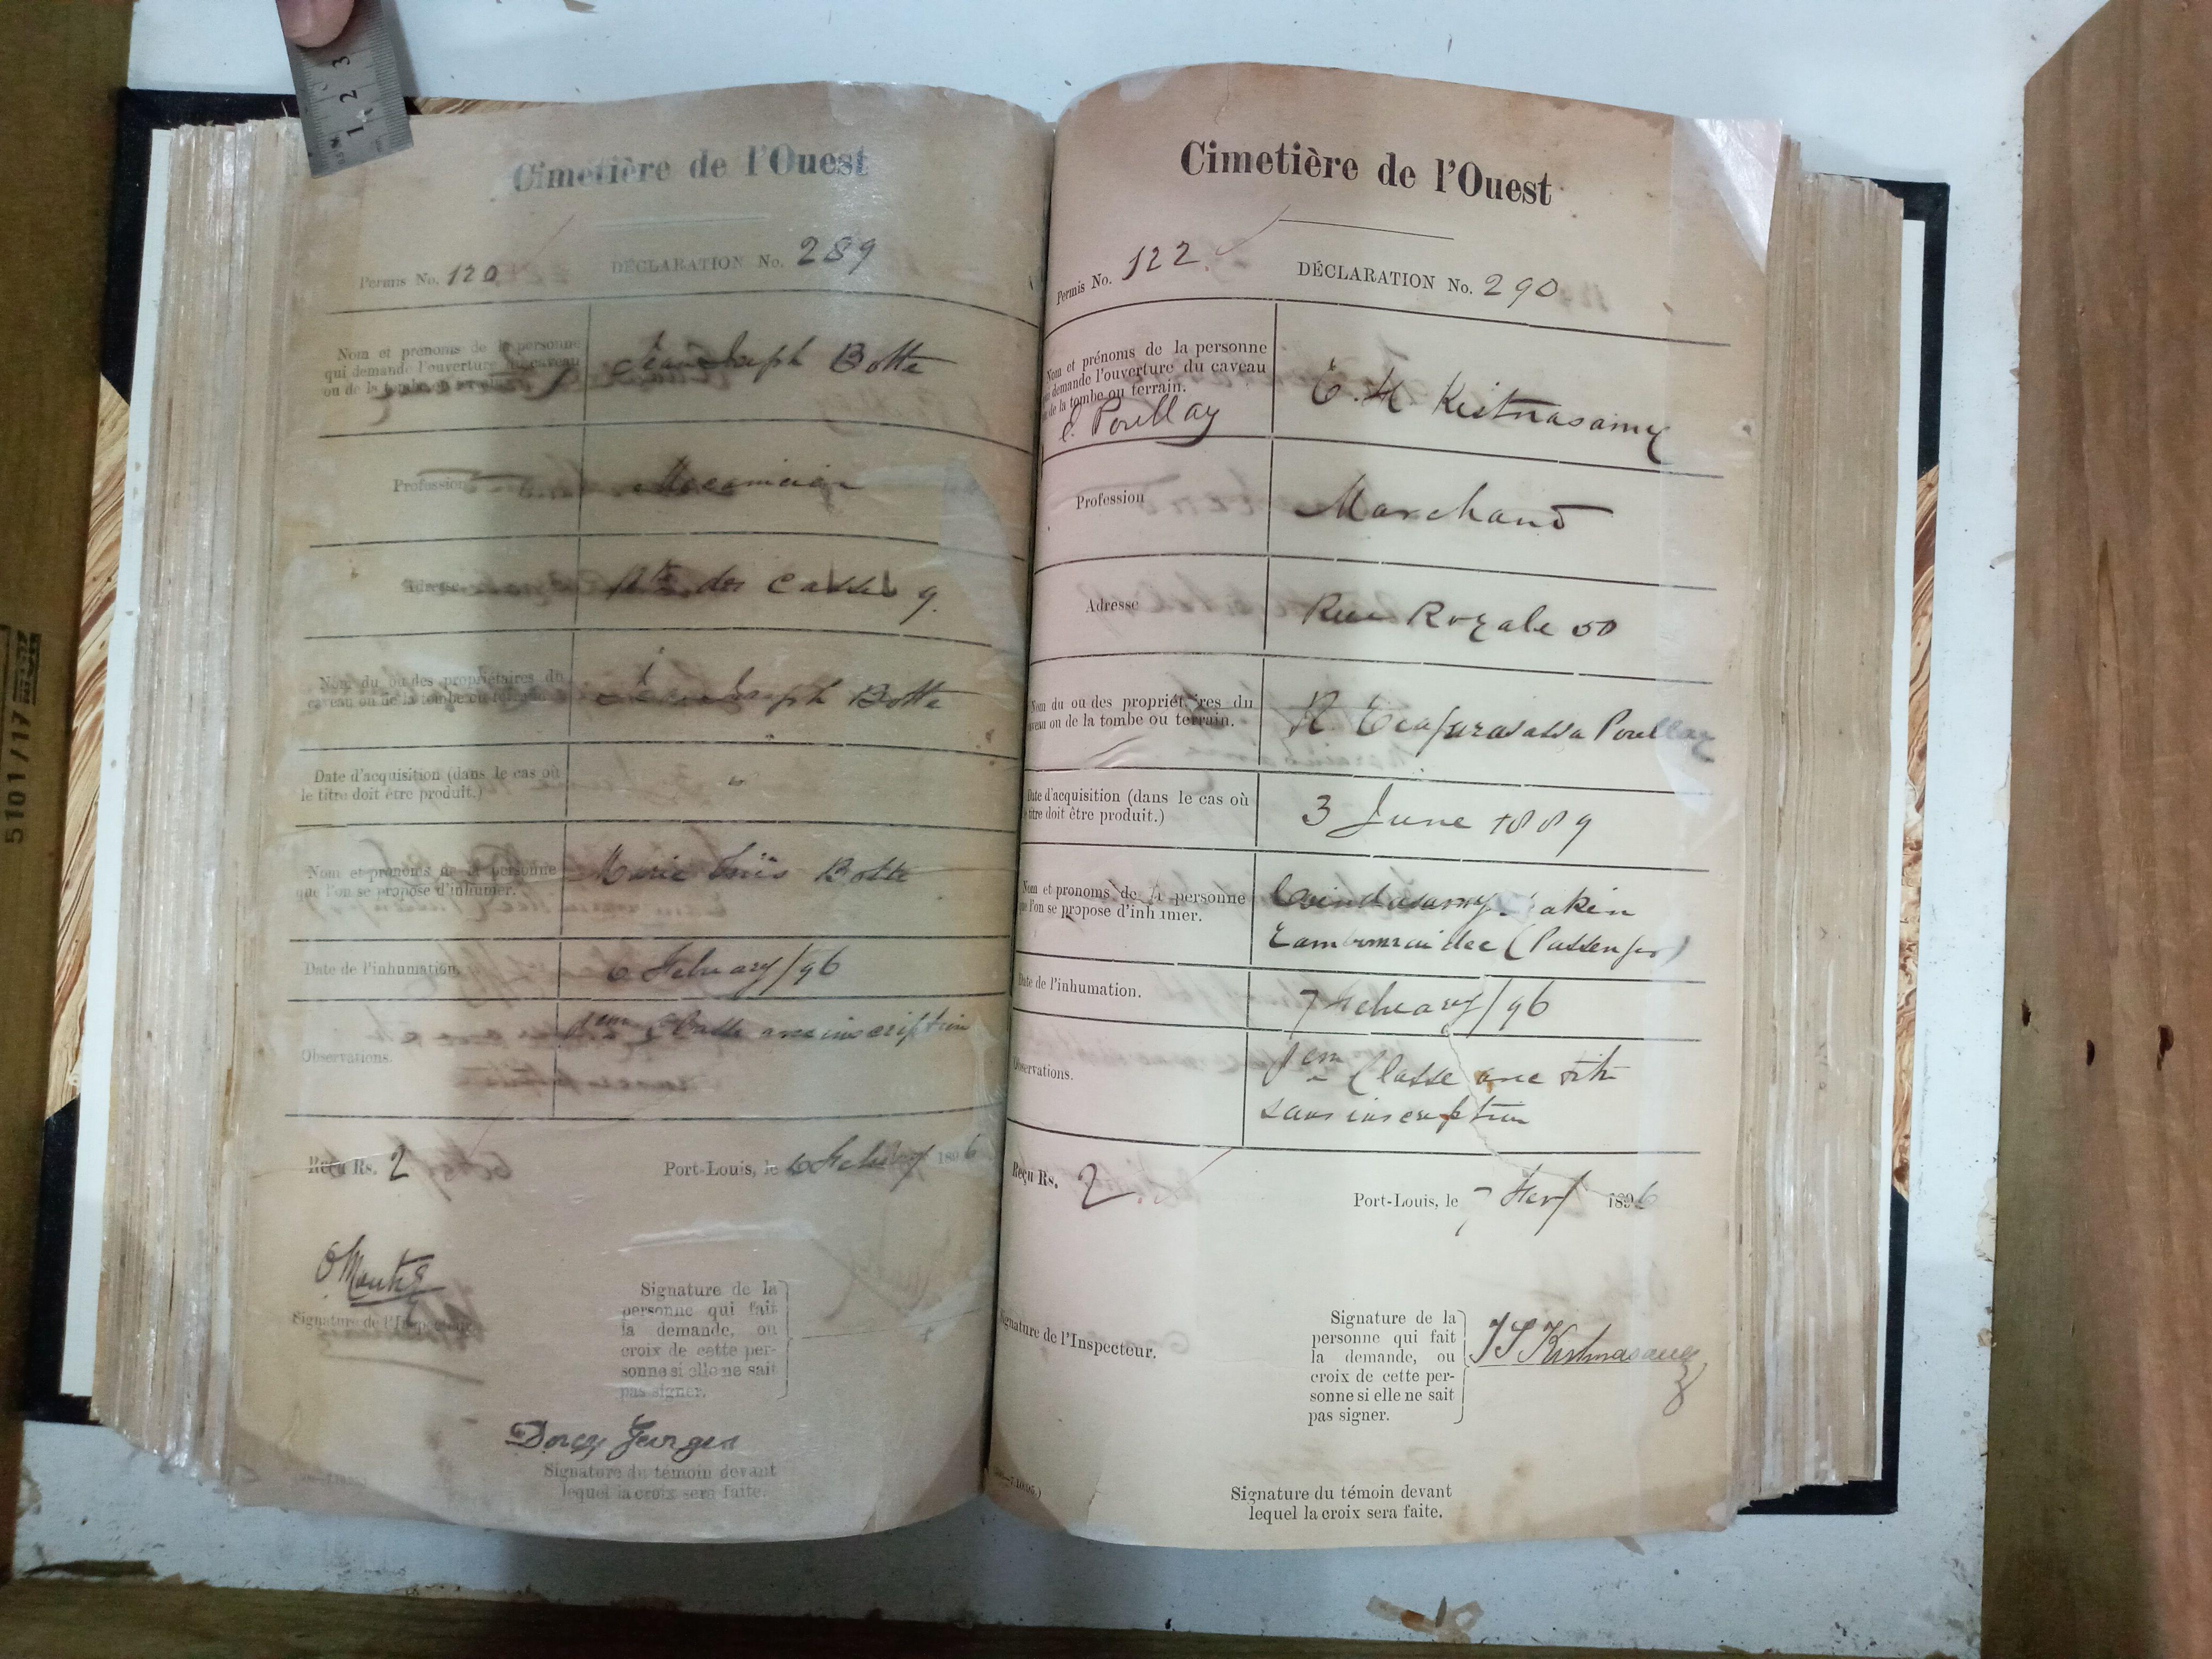 Cimetière de l'Ouest
Permis No. 120 DÉCLARATION No. 289
Nom et prénoms de la personne
qui demande l'ouverture du caveau
ou de la tombe ou terrain.
Jean Joseph Botte
Profession
Adresse
des Casses 9.
Nom du ou des propriétaires du
caveau ou de la tombe ou terrain.
Jean Joseph Botte
Date d'acquisition (dans le cas où
le titre doit être produit.)
"
Nom et pronoms de la personne
que l'on se propose d'inhumer.
Marie Inïs Botte
Date de l'inhumation.
6 February/96
Observations.
1ème Classe avec inscription
Reçu Rs. 2 Port-Louis, le 6 1896
Signature de l'Inspecteur.
Signature de la
personne qui fait
la demande, ou
croix de cette per-
sonne si elle ne sait
pas signer.
Dorcy Georges
Signature du témoin devant
lequel la croix sera faite.
Cimetière de l'Ouest
Permis No. 122. DÉCLARATION No. 290
Nom et prénoms de la personne
demande l'ouverture du caveau
ou de la tombe ou terrain.
C. Poullay
E. H Kistnasamy
Profession
Marchand
Adresse
Rue Royale 50
Nom du ou des propriétaires du
caveau ou de la tombe ou terrain.
R Poullay
Date d'acquisition (dans le cas où
titre doit être produit.)
3 June 1889
Nom et pronoms de la personne
que l'on se propose d'inhumer.
(Passenger)
Date de l'inhumation.
7 February/96
Observations.
1ème Classe avec titre
sans inscription
Reçu Rs. 2 Port-Louis, le 7 1896
Signature de l'Inspecteur.
Signature de la
personne qui fait
la demande, ou
croix de cette per-
sonne si elle ne sait
pas signer.
Kistnasamy
Signature du témoin devant
lequel la croix sera faite.